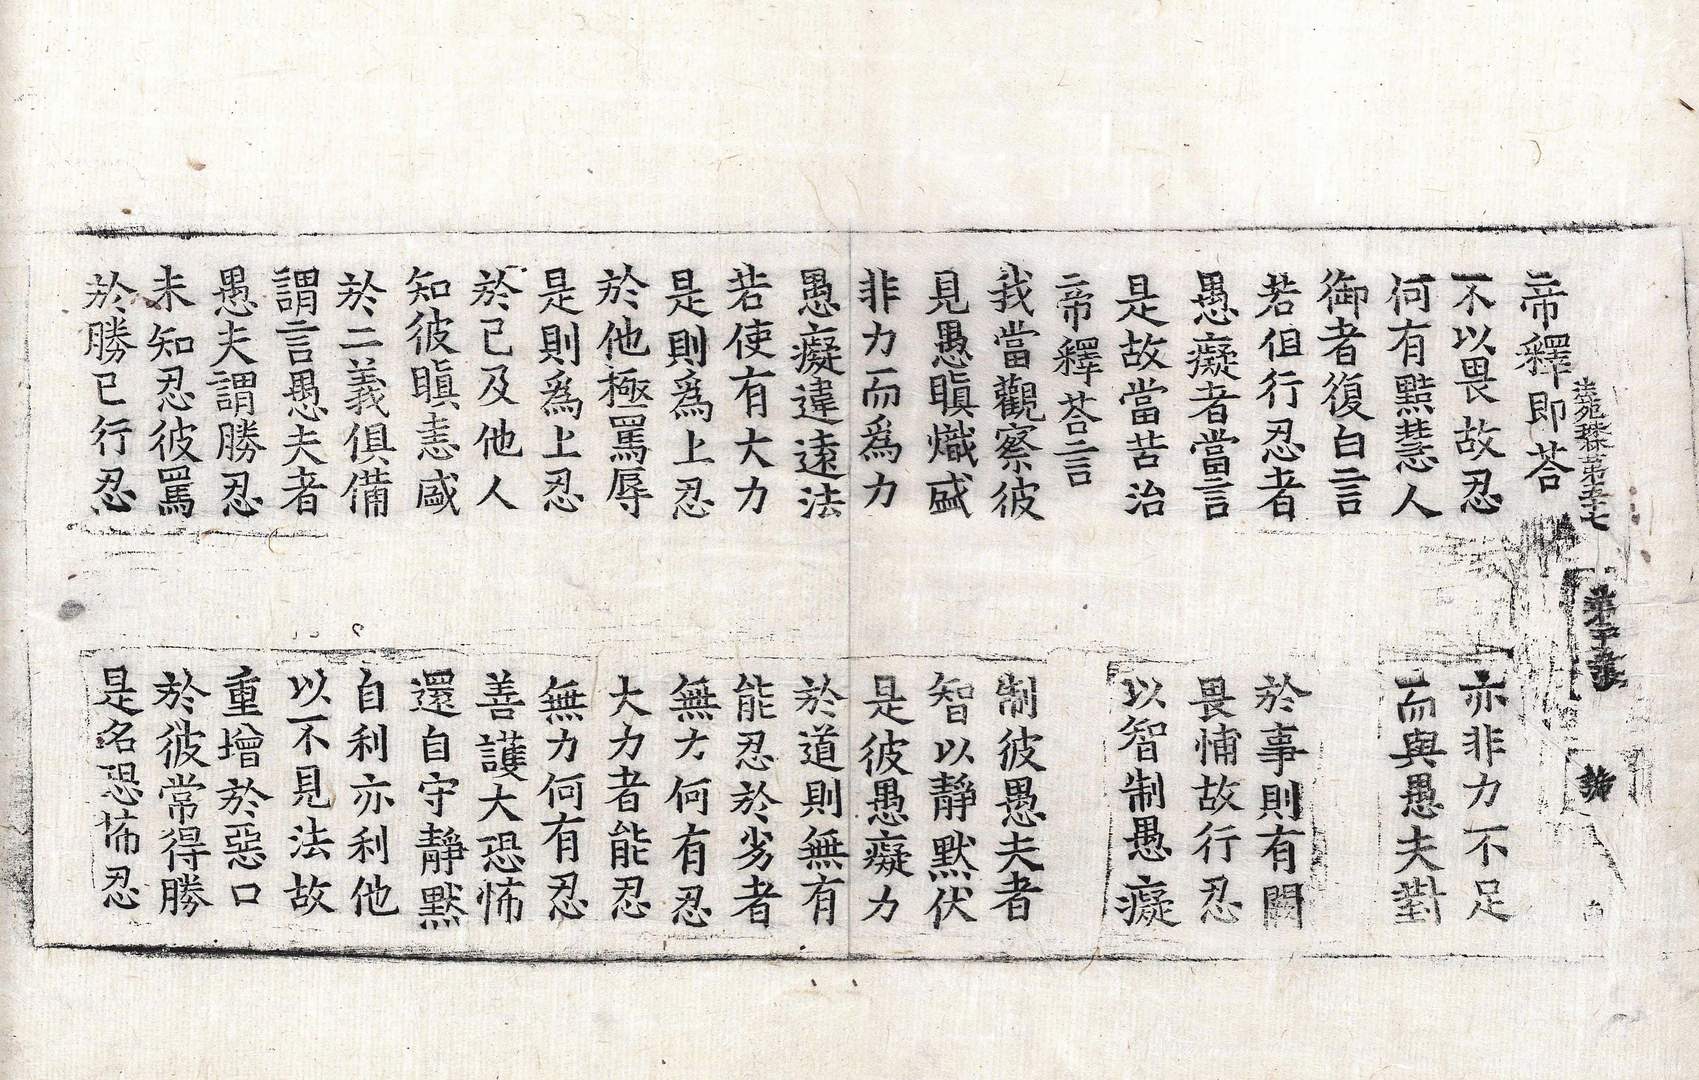 帝釋即荅
不以畏故忍　亦非力不足
何有黠慧人　而與愚夫對
御者復白言
若但行忍者　於事則有闕
愚癡者當言　畏怖故行忍
是故當苦治　以智制愚癡
帝釋荅言
我當觀察彼　制彼愚夫者
見愚瞋熾盛　智以靜默伏
非力而爲力　是彼愚癡力
愚癡違遠法　於道則無有
若使有大力　能忍於劣者
是則爲上忍　無力何有忍
於他極罵辱　大力者能忍
是則爲上忍　無力何有忍
於已及他人　善護大恐怖
知彼瞋恚盛　還自守靜默
於二義俱備　自利亦利他
謂言愚夫者　以不見法故
愚夫謂勝忍　重增於惡口
未知忍彼罵　於彼常得勝
於勝已行忍　是名恐怖忍